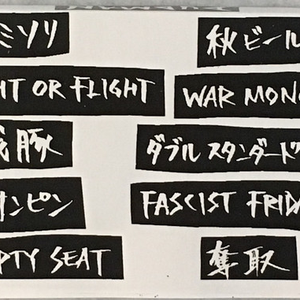 ミソリ
HT OR FLIGHT
豚
ンピン
PTY SEAT
秋ビール
WAR MON
ダブルスタンダード
FASCIST FRIDA
奪取